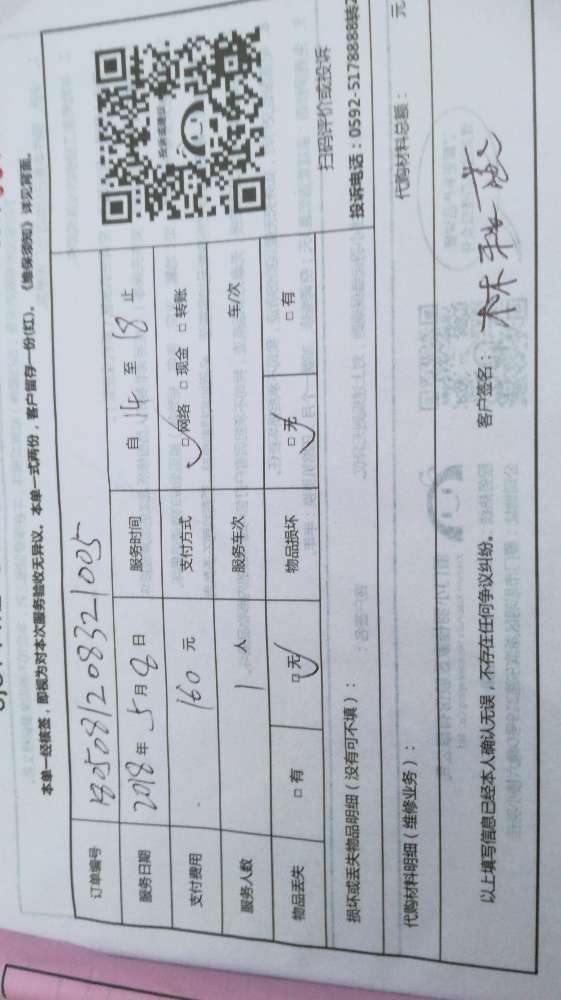 本单一经核签，即视为对本次服务验收无异议。本单一式两份，客户留存一份(红)。《维保须知》详见背面。
订单编号 180508120832 1005
服务日期 2018年5月8日 服务时间 自14至18止
支付费用 160元 支付方式 □网络 □现金 □转账
服务人数 1人 服务车次 车/次
物品丢失 □有 □无 物品损坏 □无 □有
扫码评价或投诉
损坏或丢失物品明细（没有可不填）： 投诉电话：0592-5178888转2
代购材料明细（维修业务）： 代购材料总额： 元
以上填写信息已经本人确认无误，不存在任何争议纠纷。 客户签名：